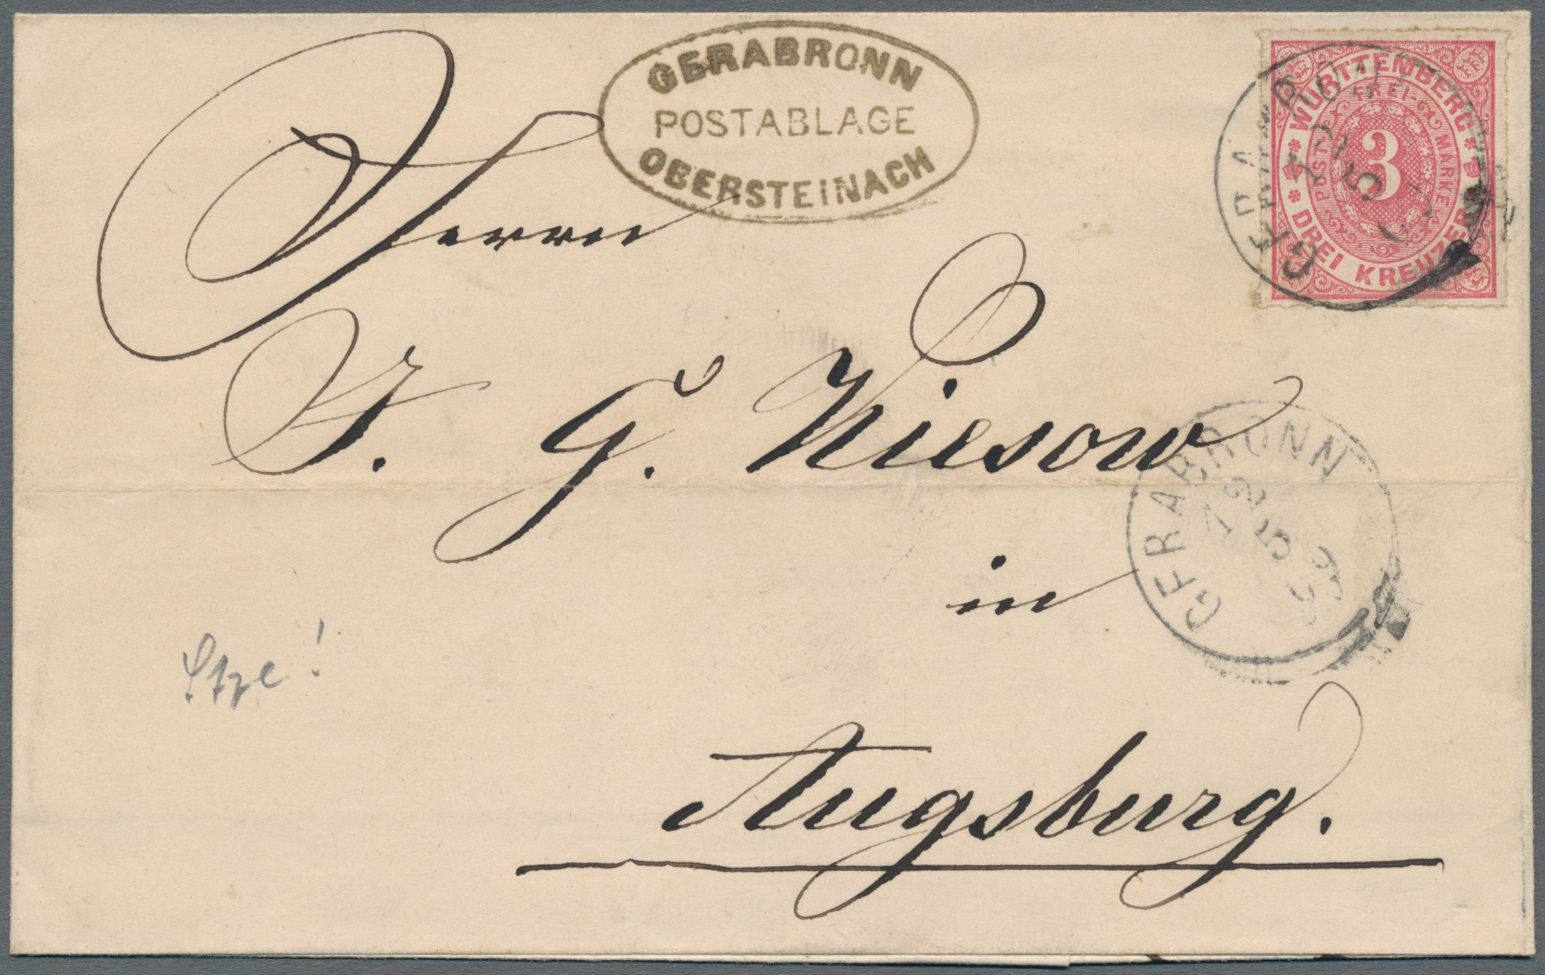 GERABRONN
POSTABLAGE
OBERSTEINACH
WÜRTTEMBERG
FREI
POST MARKE
3
DREI KREUZER
GERABRONN
12
5
Herrn
J. G. Kiesow
GERABRONN
12
5
in
Augsburg.